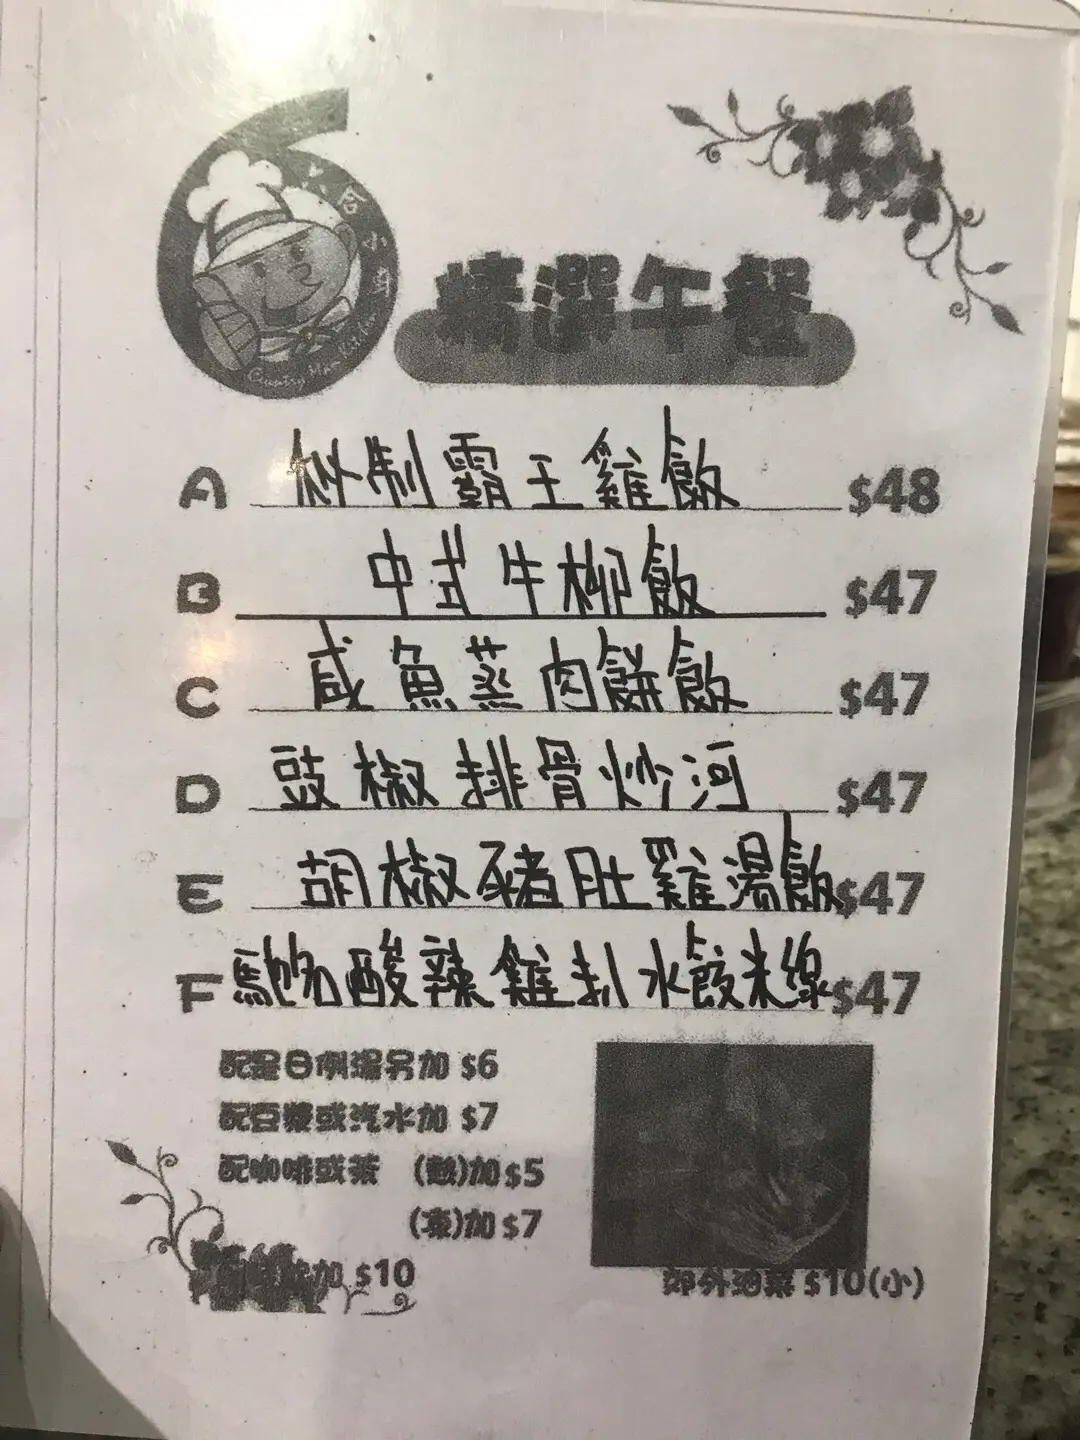 小
Country Man Kitchen
精選午餐
A 秘制霸王雞飯 $48
B 中式牛柳飯 $47
C 咸魚蒸肉餅飯 $47
D 豉椒排骨炒河 $47
E 胡椒豬肚雞湯飯 $47
F 酸辣雞扒水餃米線 $47
配是日例湯另加 $6
配豆漿或汽水加 $7
配咖啡或茶 (熱)加 $5
(凍)加 $7
加 $10
郊外油菜 $10(小)